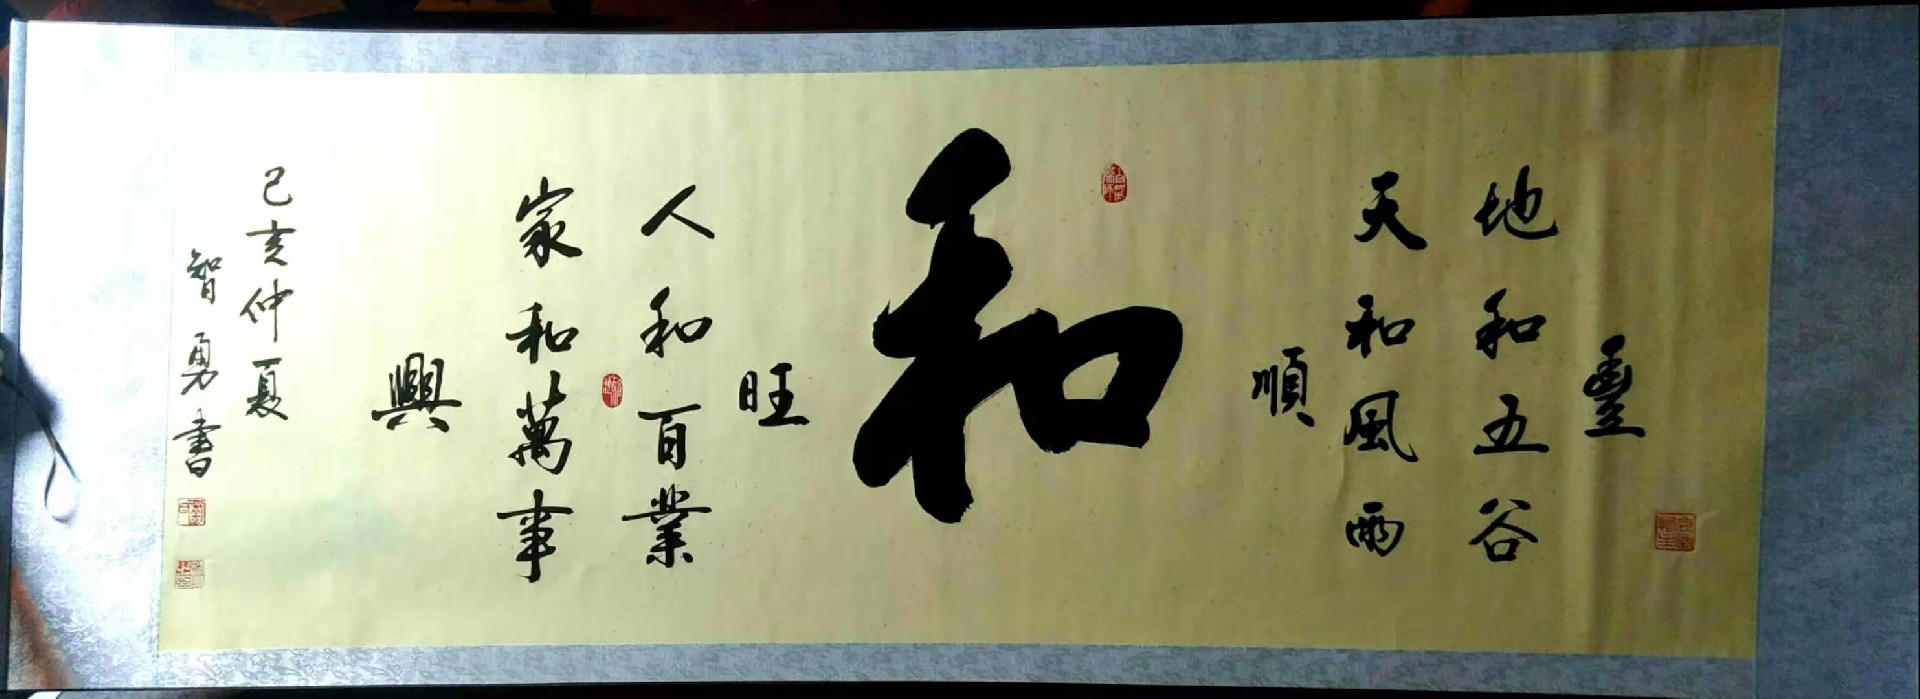 天和風雨
順
地和五谷
豐
和
人和百業
旺
家和萬事
興
己亥仲夏
智勇書